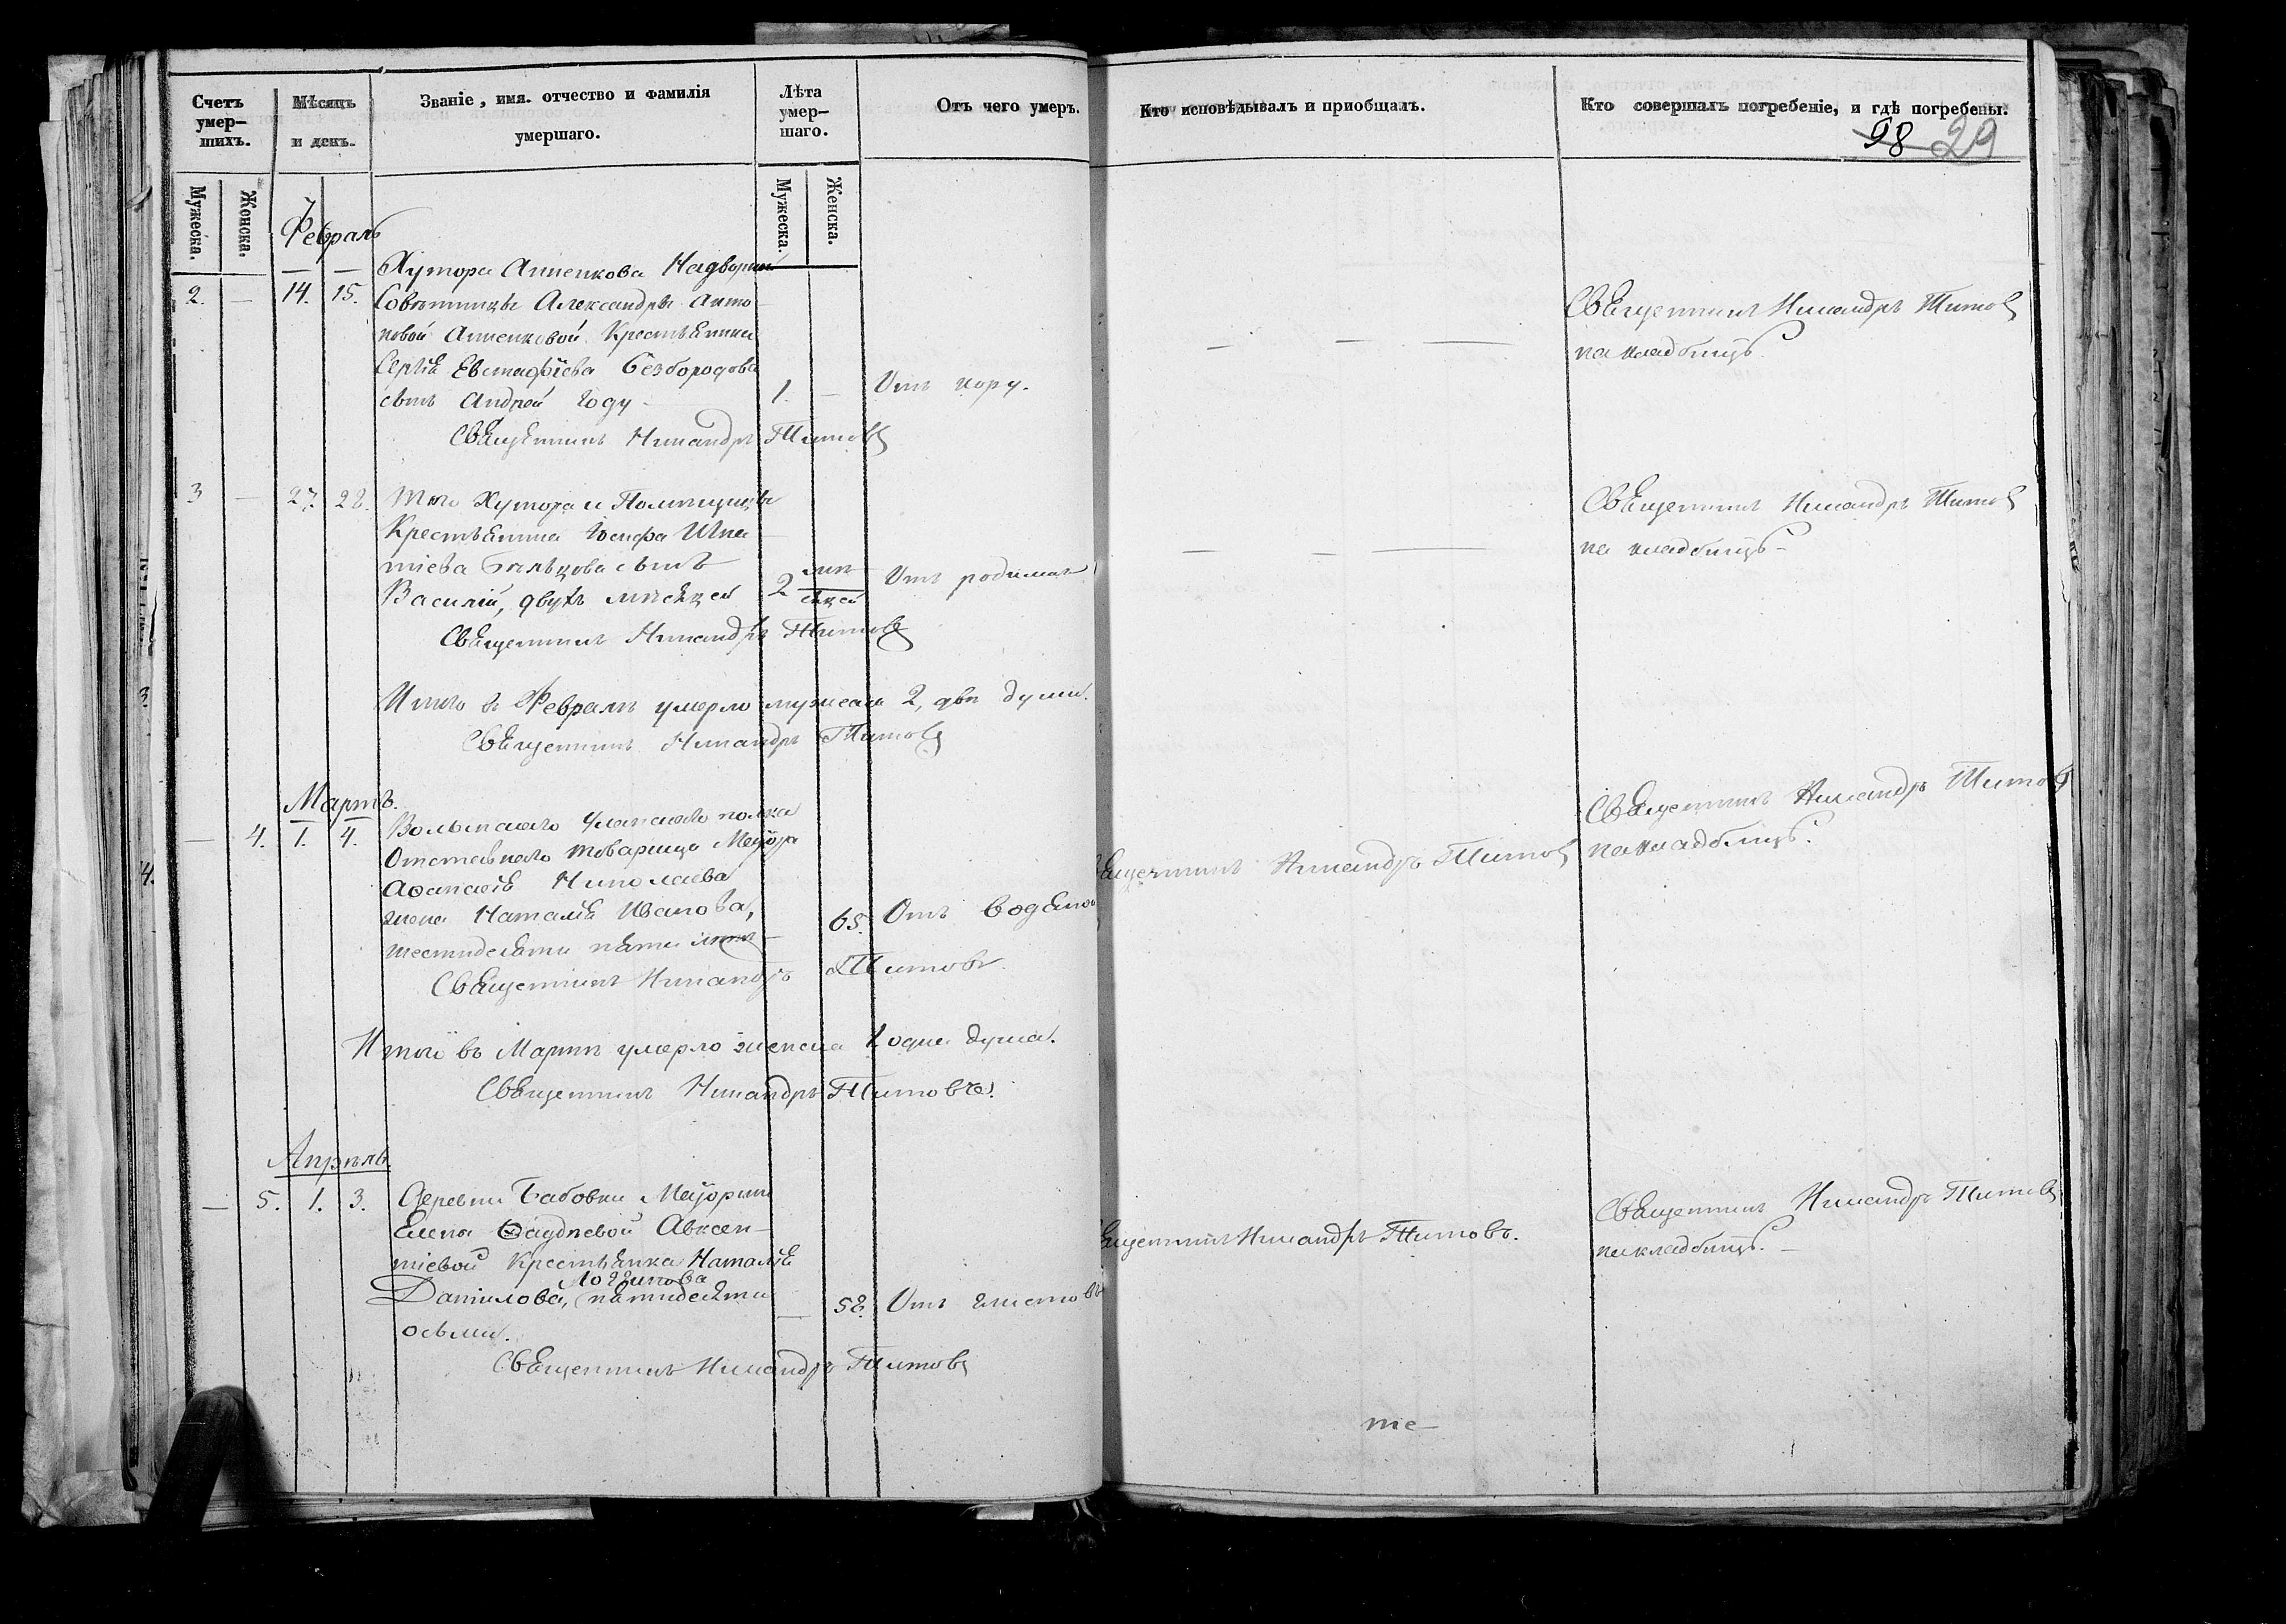 Счетъ умер–шихъ.
Мѣсяцъ и день.
Званіе, имя. отчество и фамилія
умершаго.
Лѣта умер–шаго.
Отъ чего умеръ.
Кто исповѣдывалъ и приобщалъ.
Кто совершалъ погребеніе, и гдѣ погребены.
98 29
Мужеска.
Женска.
Мужеска.
Женска.
Февраль
Хутора Анненкова Надворной
2. — 14. 15. Совѣтницы Александры Анто–
новой Анненковой Крестьянина
Сергія Евстафіева Безбородова
сынъ Андрей году – 1. — Отъ кору.
Священникъ Никандръ Титовъ
на кладбищѣ.
Священникъ Никандръ Титовъ
3 — 27. 28. Того Хутора и Помѣщицы
Крестьянина Іосифа Игна–
тіева сынъ
Василій, двухъ мѣсяцей 2 мѣсяцей Отъ родимца
Священникъ Никандръ Титовъ
на кладбищѣ –
Священникъ Никандръ Титовъ
Итого въ Февралѣ умерло мужеска 2, двѣ души.
Священникъ Никандръ Титовъ
Мартъ.
— 4. 1. 4. Волынскаго Уланскаго полка
Отставнаго товарища Маіора
Аѳанасія Николаева
жена Наталія Иванова,
шестидесяти пяти лѣтъ – 65. Отъ водяной
Священникъ Никандръ Титовъ
Священникъ Никандръ Титовъ
на кладбищѣ.
Священникъ Никандръ Титовъ.
Итого въ Мартѣ умерло женска 1 одна душа.
Священникъ Никандръ Титовъ.
Апрѣль
— 5. 1. 3. Деревни Бабовки Маіорши
Елены Авксен–
тіевой Крестьянка Наталія
Логгинова
Данилова, пятидесяти
осьми. — 58. Отъ глистовъ
ященникъ Никандръ Титовъ.
Священникъ Никандръ Титовъ
на кладбищѣ. –
Священникъ Никандръ Титовъ
те–